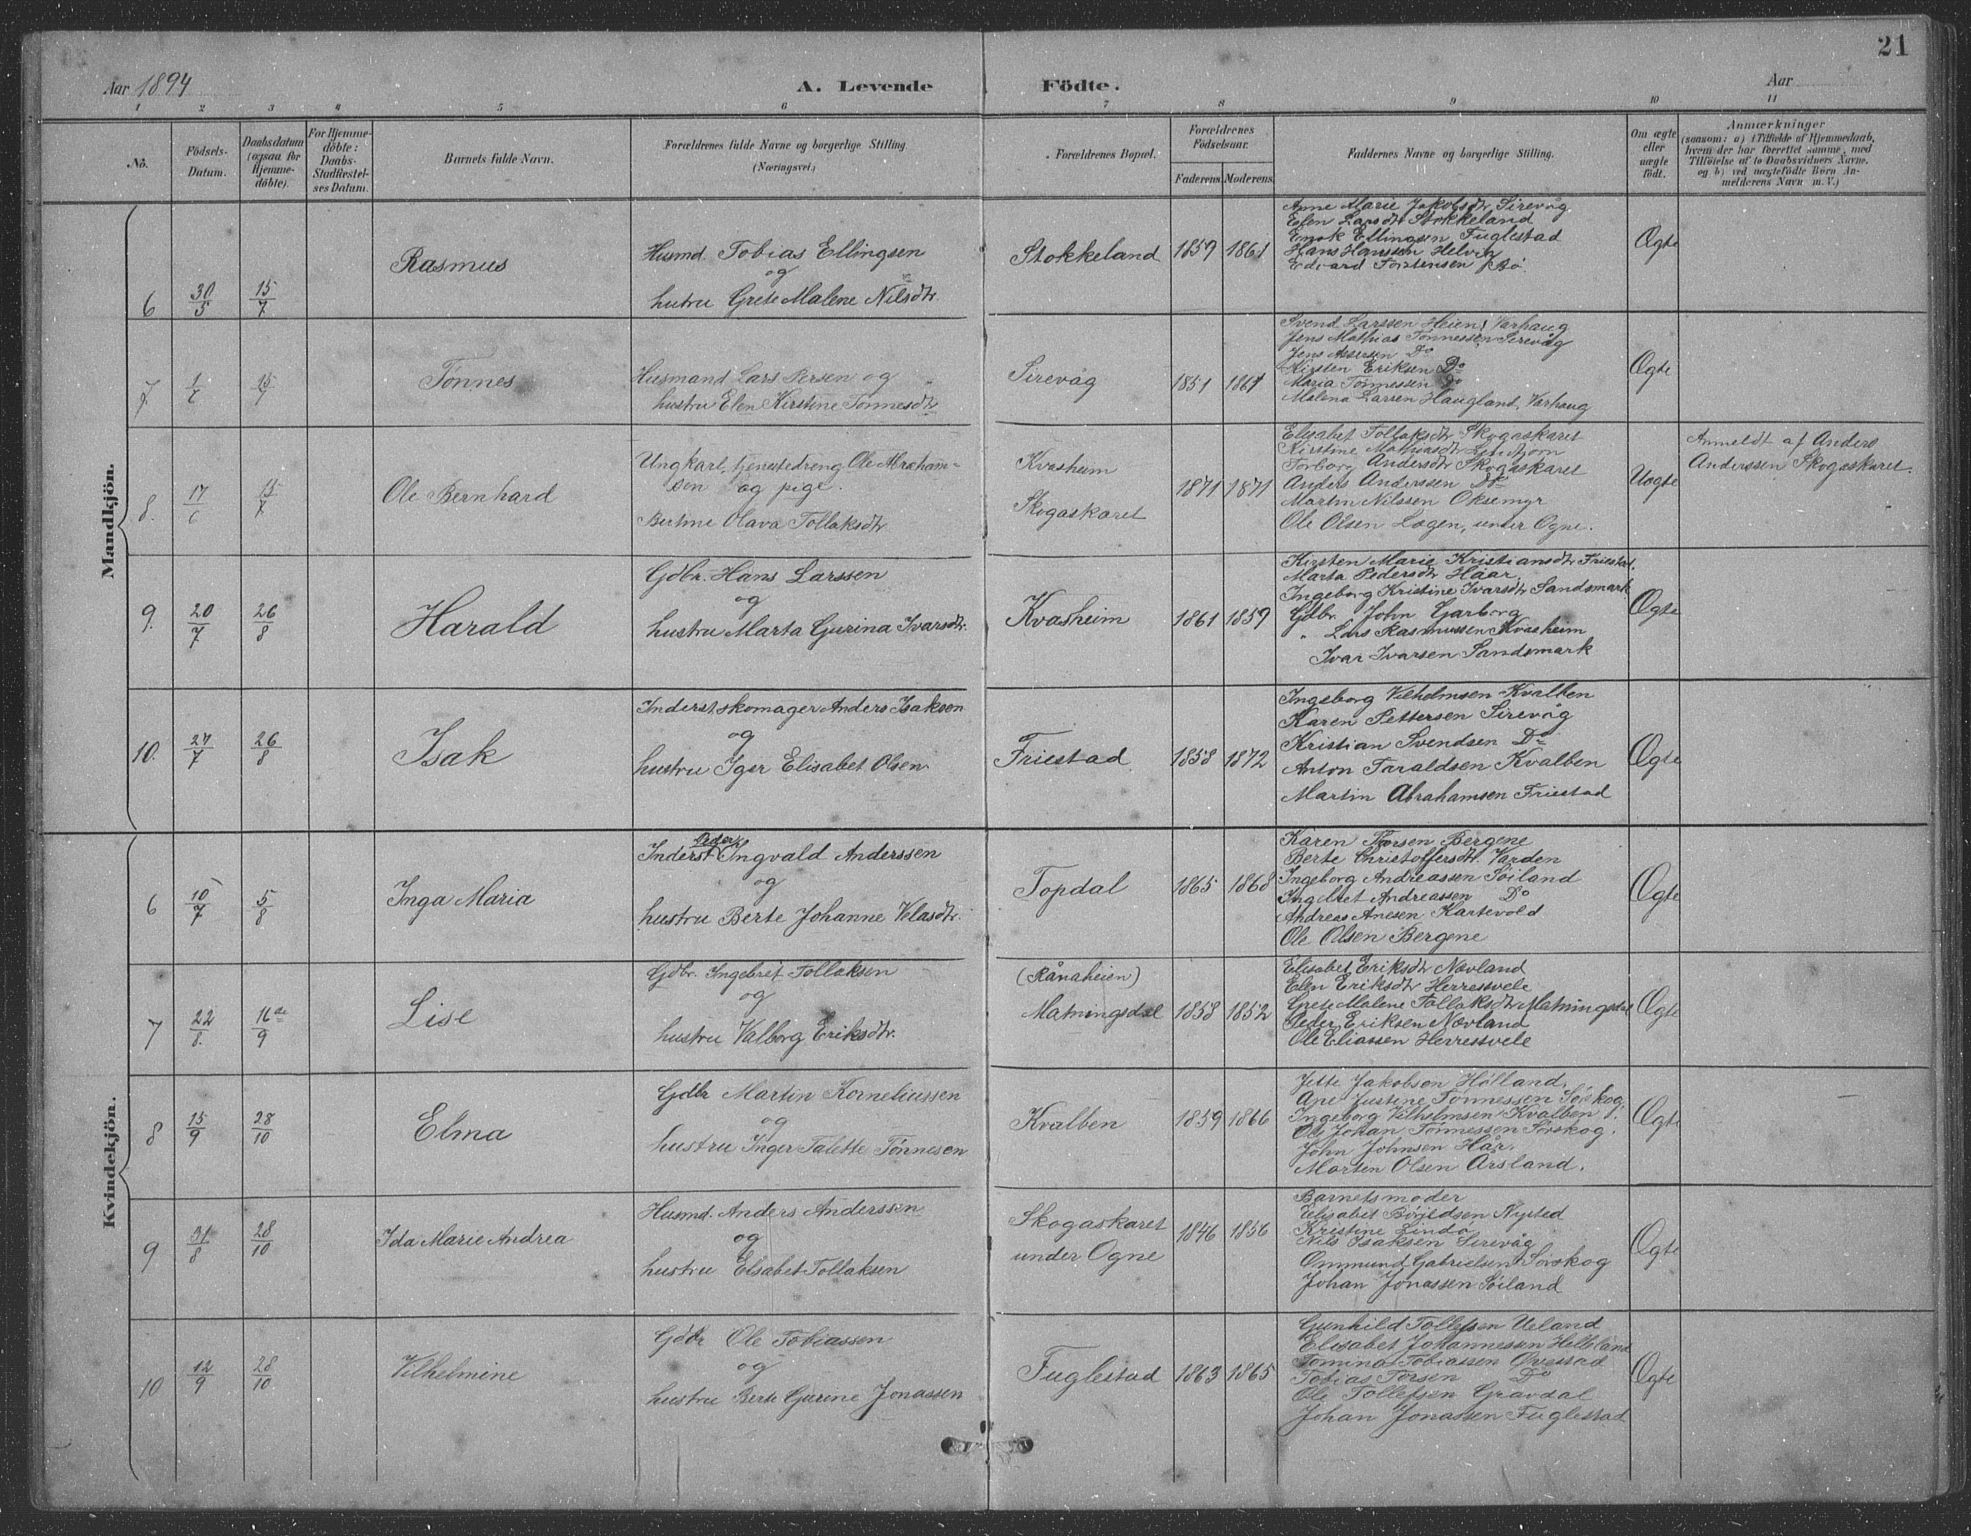 21
Aar 1894 A. Levende Födte. Aar
1 2 3 4 5 6 7 8 9 10 11
No.
Födsels-
Datum.
Daabsdatum
(ogsaa for
Hjemme-
döbte).
For Hjemme-
döbte:
Daabs-
Stadfæstel-
ses Datum.
Barnets fulde Navn.
Forældrenes fulde Navne og borgerlige Stilling.
(Næringsvei.)
Forældrenes Bopæl.
Forældrenes
Födselsaar.
Faderens. Moderens.
Faddernes Navne og borgerlige Stilling.
Om ægte
eller
uægte
födt.
Anmærkninger
(saasom: a) i Tilfælde af Hjemmedaab,
hvem der har forrettet samme, med
Tilföielse af to Daabsvidners Navne,
og b) ved uægtefödte Börn An-
melderens Navn m. V.)
Mandkjön.
6 30/5 15/7 Rasmus
Husmd. Tobias Ellingsen
og
hustru Grete Malene Nilsdtr.
Stokkeland 1859 1861
Anne Marie Jakobsdtr Sirevåg
Elen Larsdtr Stokkeland
Enok Ellingsen Fuglestad
Hans Hanssen Helvig
Edvard Torstensen Bö.
Ægte
7. 15/7 Tönnes
Husmand Lars Persen og
hustru Elen Kirstine Tönnesdtr
Sirevåg 1851 1861
Svend Larssen Heien, Varhaug
Jens Mathias Tönnessen Sirevåg
Jens Assersen Do
Kirsten Eriksen Do
Maria Tönnessen Do
Malena Larsen Haugland, Varhaug
Ægte
8. 17/6 15/7 Ole Bernhard
Ungkarl, tjenestedreng Ole Abraham-
sen og pige.
Bertine Olava Tollaksdtr.
Kvasheim
Skogaskaret
1871 1871
Elisabet Tollaksdtr Skogaskaret
Kirstine Mathiasdtr
Torborg Andersdtr Skogaskaret
Anders Anderssen Do
Martin Nilssen Oksemyr
Ole Olsen Lægen, under Ogne.
Uægte
Anmeldt af Anders
Anderssen Skogaskaret.
9. 20/7 26/8 Harald
Gdbr. Hans Larssen
og
hustru Marta Gurina Ivarsdtr.
Kvasheim 1861 1859
Kirsten Marie Kristiansdtr Friestad.
Marta Pedersdtr Håar.
Ingeborg Kristine Ivarsdtr Sandsmark
Gdbr. John Garborg
" Lars Rasmussen Kvasheim
Ivar Ivarsen Sandsmark
Ægte
10. 27/7 26/8 Isak
Inderst skomager Anders Isaksen
og
hustru Iger Elisabet Olsen.
Friestad 1858 1872
Ingeborg Vilhelmsen Kvalben
Karen Pettersen Sirevåg
Kristian Svendsen Do
Anton Taraldsen Kvalben
Martin Abrahamsen Friestad
Ægte
Kvindekjön.
6 10/7 5/8 Inga Maria
Peder
Inderst Ingvald Anderssen
og
hustru Berte Johanne Velasdtr.
Topdal 1865 1868
Karen Thorsen Bergene
Berte Christoffersdtr. Varden
Ingeborg Andreassen Söiland
Ingebret Andreassen Do
Andreas Anesen Hartevold
Ole Olsen Bergene
Ægte
7 22/8. 16de/9 Lise
Gdbr. Ingebret Tollaksen
og
hustru Valborg Eriksdtr.
(Rånaheien)
Matningsdal 1858 1852
Elisabet Eriksdtr Nævland
Elen Eriksdtr Herresvele
Grete Malene Tollaksdtr Matningsdal
Peder Eriksen Nævland
Ole Eliassen Herressvele
Ægte
8 15/9 28/10 Elma
Gdbr Martin Korneliussen
og
hustru Inger Talette Tönnesen
Kvalben 1859 1866
Jette Jakobsen Hölland,
Ane Justine Tönnessen Sörskog
Ingeborg Vilhelmsen Kvalben
Ole Johan Tönnessen Sörskog.
John Johnsen Hår.
Marten Olsen Årsland.
Ægte
9 31/8 28/10 Ida Marie Andrea
Husmd. Anders Anderssen
og
hustru Elsabet Tollaksen
Skogaskaret
under Ogne
1846 1856
Barnets moder
Elisabet Börildsen Nysted
Kristine Lindö
Nils Isaksen Sirevåg
Ommund Gabrielsen Sörskog
Johan Jonassen Söiland
Ægte
10 12/9 28/10 Vilhelmine
Gdbr Ole Tobiassen
og
hustru Berte Gurine Jonassen
Fuglestad 1863 1865
Gunhild Tollefsen Ueland
Elisabet Johannessen Helleland
Tomina Tobiassen Ovestad
Tobias Torsen Do
Ole Tollefsen Gravdal
Johan Jonassen Fuglestad
Ægte